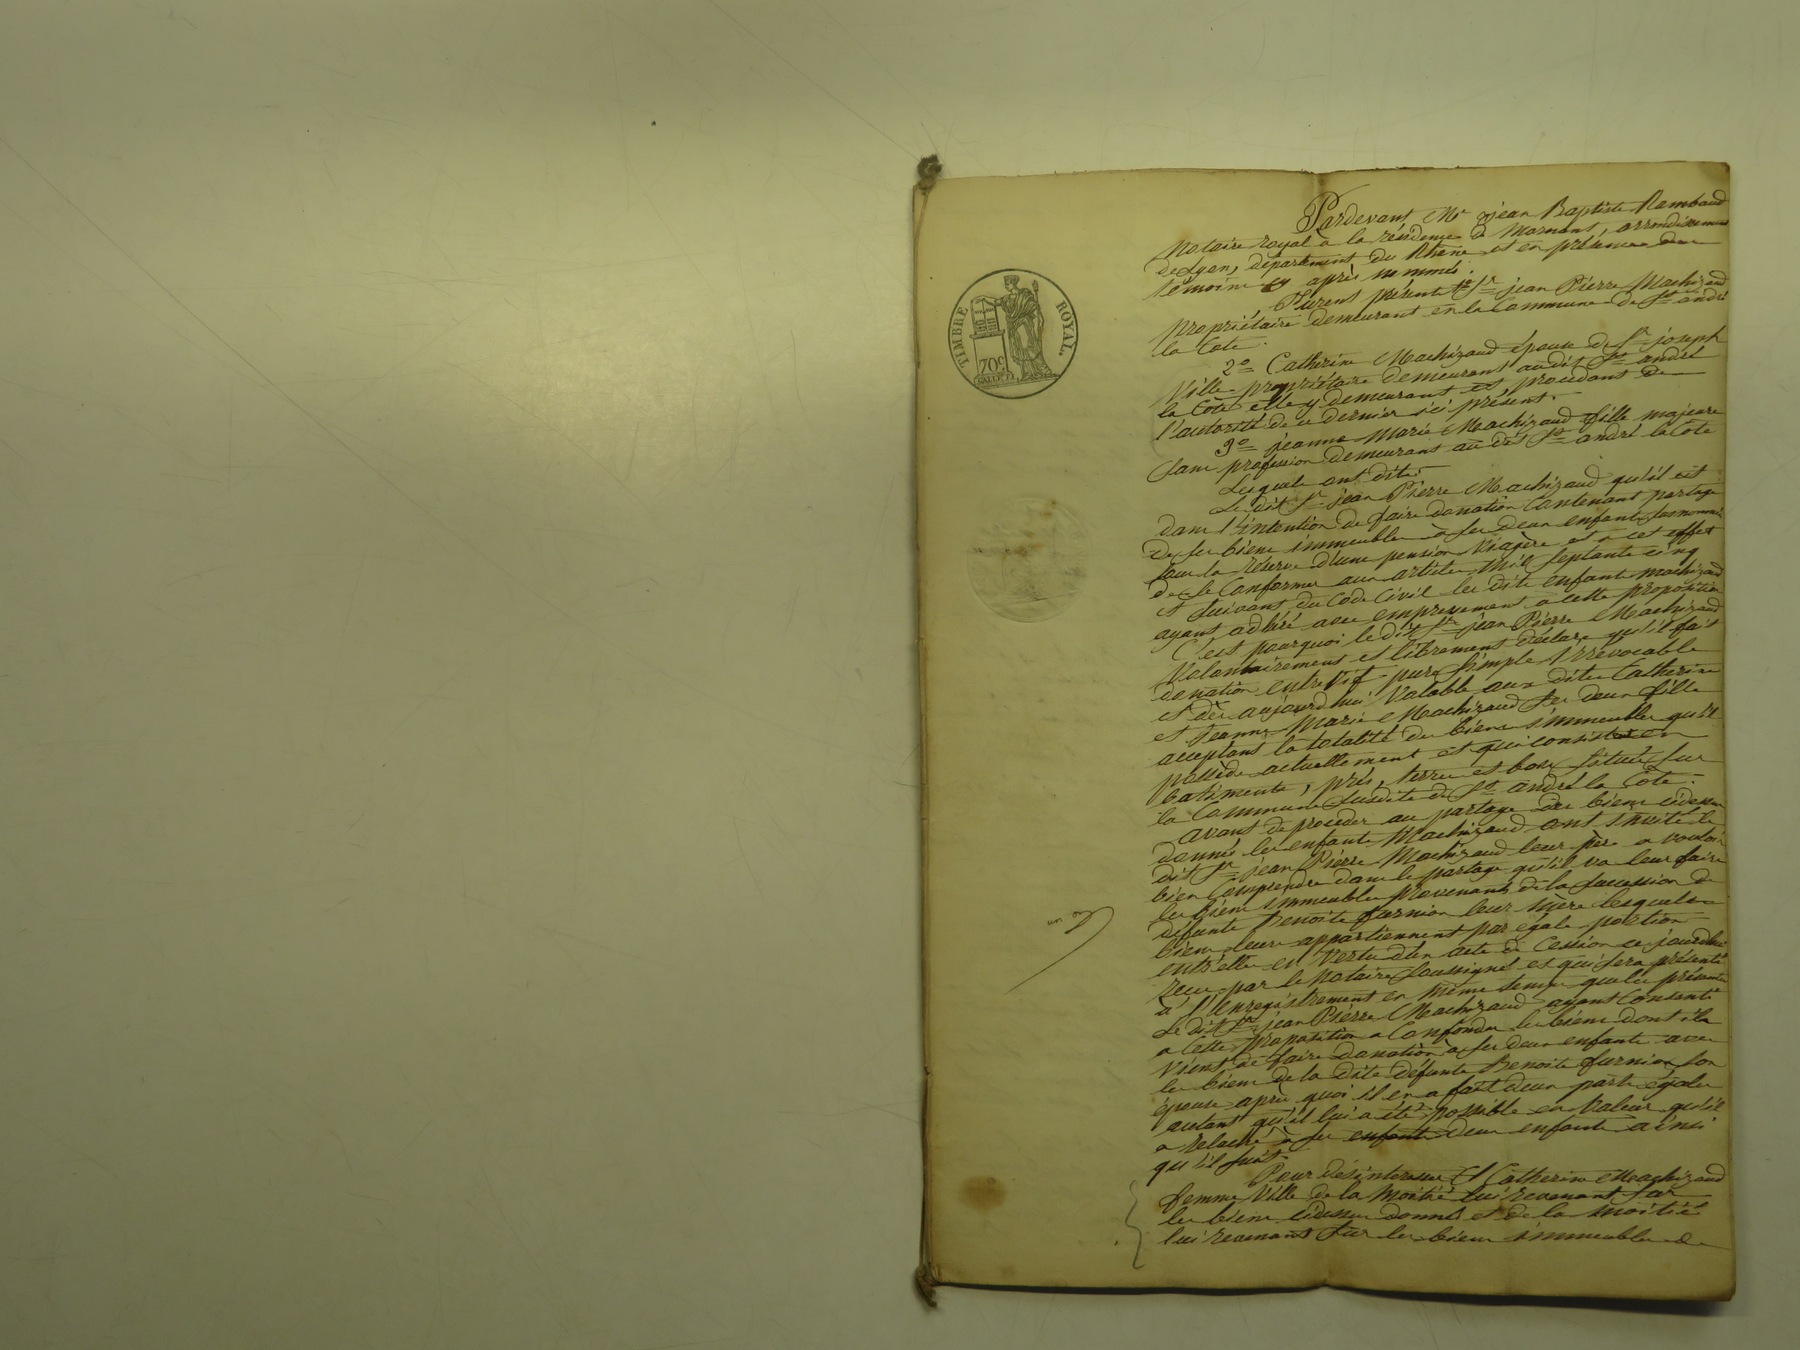 TIMBRE ROYAL
70c
Pardevant Me jean Baptiste Rambaud
Notaire royal à la résidence de Mornant, arrondissement
de Lyon, département du Rhône et en présence des
témoins cy après nommés.
Furent présents 1o Sr jean Pierre Machizaud
propriétaire demeurant en la Commune de St andré
la Côte.
2o Catherine Machizaud épouse de Sr joseph
Ville propriétaire demeurant audit St andré
la Côte elle y demeurant et procédant de
l'autorité de ce dernier ici présent.
3o jeanne Marie Machizaud fille majeure
sans profession demeurant au dit St andré la Côte
Lesquels ont dit:
Le dit Sr jean Pierre Machizaud qu'il est
dans l'intention de faire donation Contenant partage
de ses biens immeubles à ses deux enfants susnommés
sous la réserve d'une pension Viagère et à cet effet
de se Conformer aux articles Mil septante cinq
et suivants du Code Civil les dits enfants Machizaud
ayant adhéré avec empressement a cette proposition
C'est pourquoi le dit Sr jean Pierre Machizaud
Volontairement et librement déclare qu'il fait
donation entrevif pure simple irrévocable
et dès aujourd'hui Valable aux dites Catherine
et Jeanne Marie Machizaud ses deux filles
acceptant la totalité des biens immeubles qu'il
possède actuellement et qui consistent en
batiments, prés, terres et bois situés sur
la Commune susdite de St andré la Côte.
avant de procéder au partage des biens cidessus
donnés les enfants Machizaud ont invité le
dit Sr jean Pierre Machizaud leur père a vouloir
bien Comprendre dans le partage qu'il va leur faire
les biens immeubles provenants de la succession de
défunte Benoite furnion leur mère lesquels
biens leurs appartiennent par égale portion
entr'elles en Vertu d'un acte de Cession ce jourdhui
reçu par le Notaire soussigné et qui sera présenté
à l'enregistrement en même temps que les présentes
Le dit Sr jean Pierre Machizaud ayant Consenti
a cette proposition a Confondu les biens dont il a
Vient de faire donation à ses deux enfants avec
les biens de la dite défunte Benoite furnion son
épouse après quoi il en a fait deux parts égales
autant qu'il lui a été possible en Valeur qu'il
a relaché à ses enfants deux enfants ainsi
qu'il suit.
Pour désintéresser Catherine Machizaud
femme Ville de la Moitié lui revenant sur
les biens cidessus donnés et de la moitié
lui revenant sur les biens immeubles de